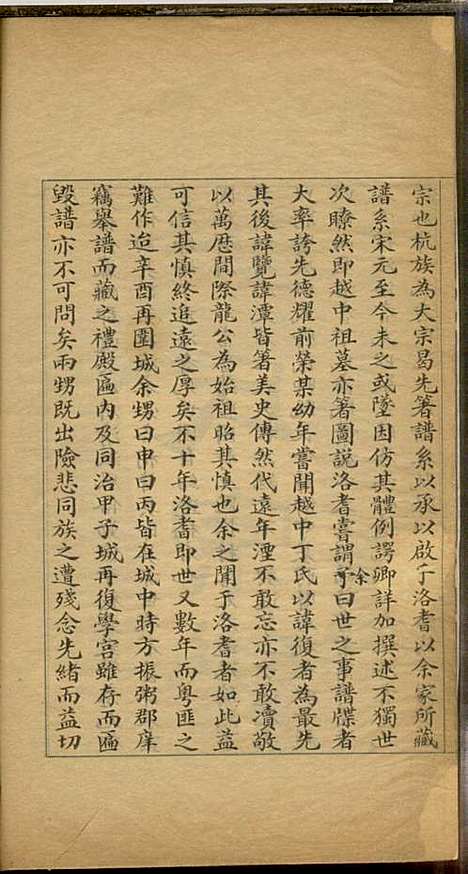 宗也杭族為大宗曷先箸譜系以承以啟于洛耆以余家所藏
譜系宋元至今未之或墜因仿其體例諤卿詳加撰述不獨世
次瞭然即越中祖墓亦箸圖説洛耆嘗謂予余曰世之事譜牒者
大率誇先德耀前榮某幼年嘗聞越中丁氏以諱復者為最先
其後諱覽諱潭皆箸美史傳然代遠年湮不敢忘亦不敢瀆敬
以萬厯間際龍公為始祖昭其慎也余之聞于洛耆者如此益
可信其慎終追遠之厚矣不十年洛耆即世又數年而粤匪之
難作迨辛酉再圍城余甥曰申曰丙皆在城中時方振粥郡庠
竊舉譜而藏之禮殿匾內及同治甲子城再復學宮雖存而匾
毀譜亦不可問矣兩甥既出險悲同族之遭殘念先緒而益切